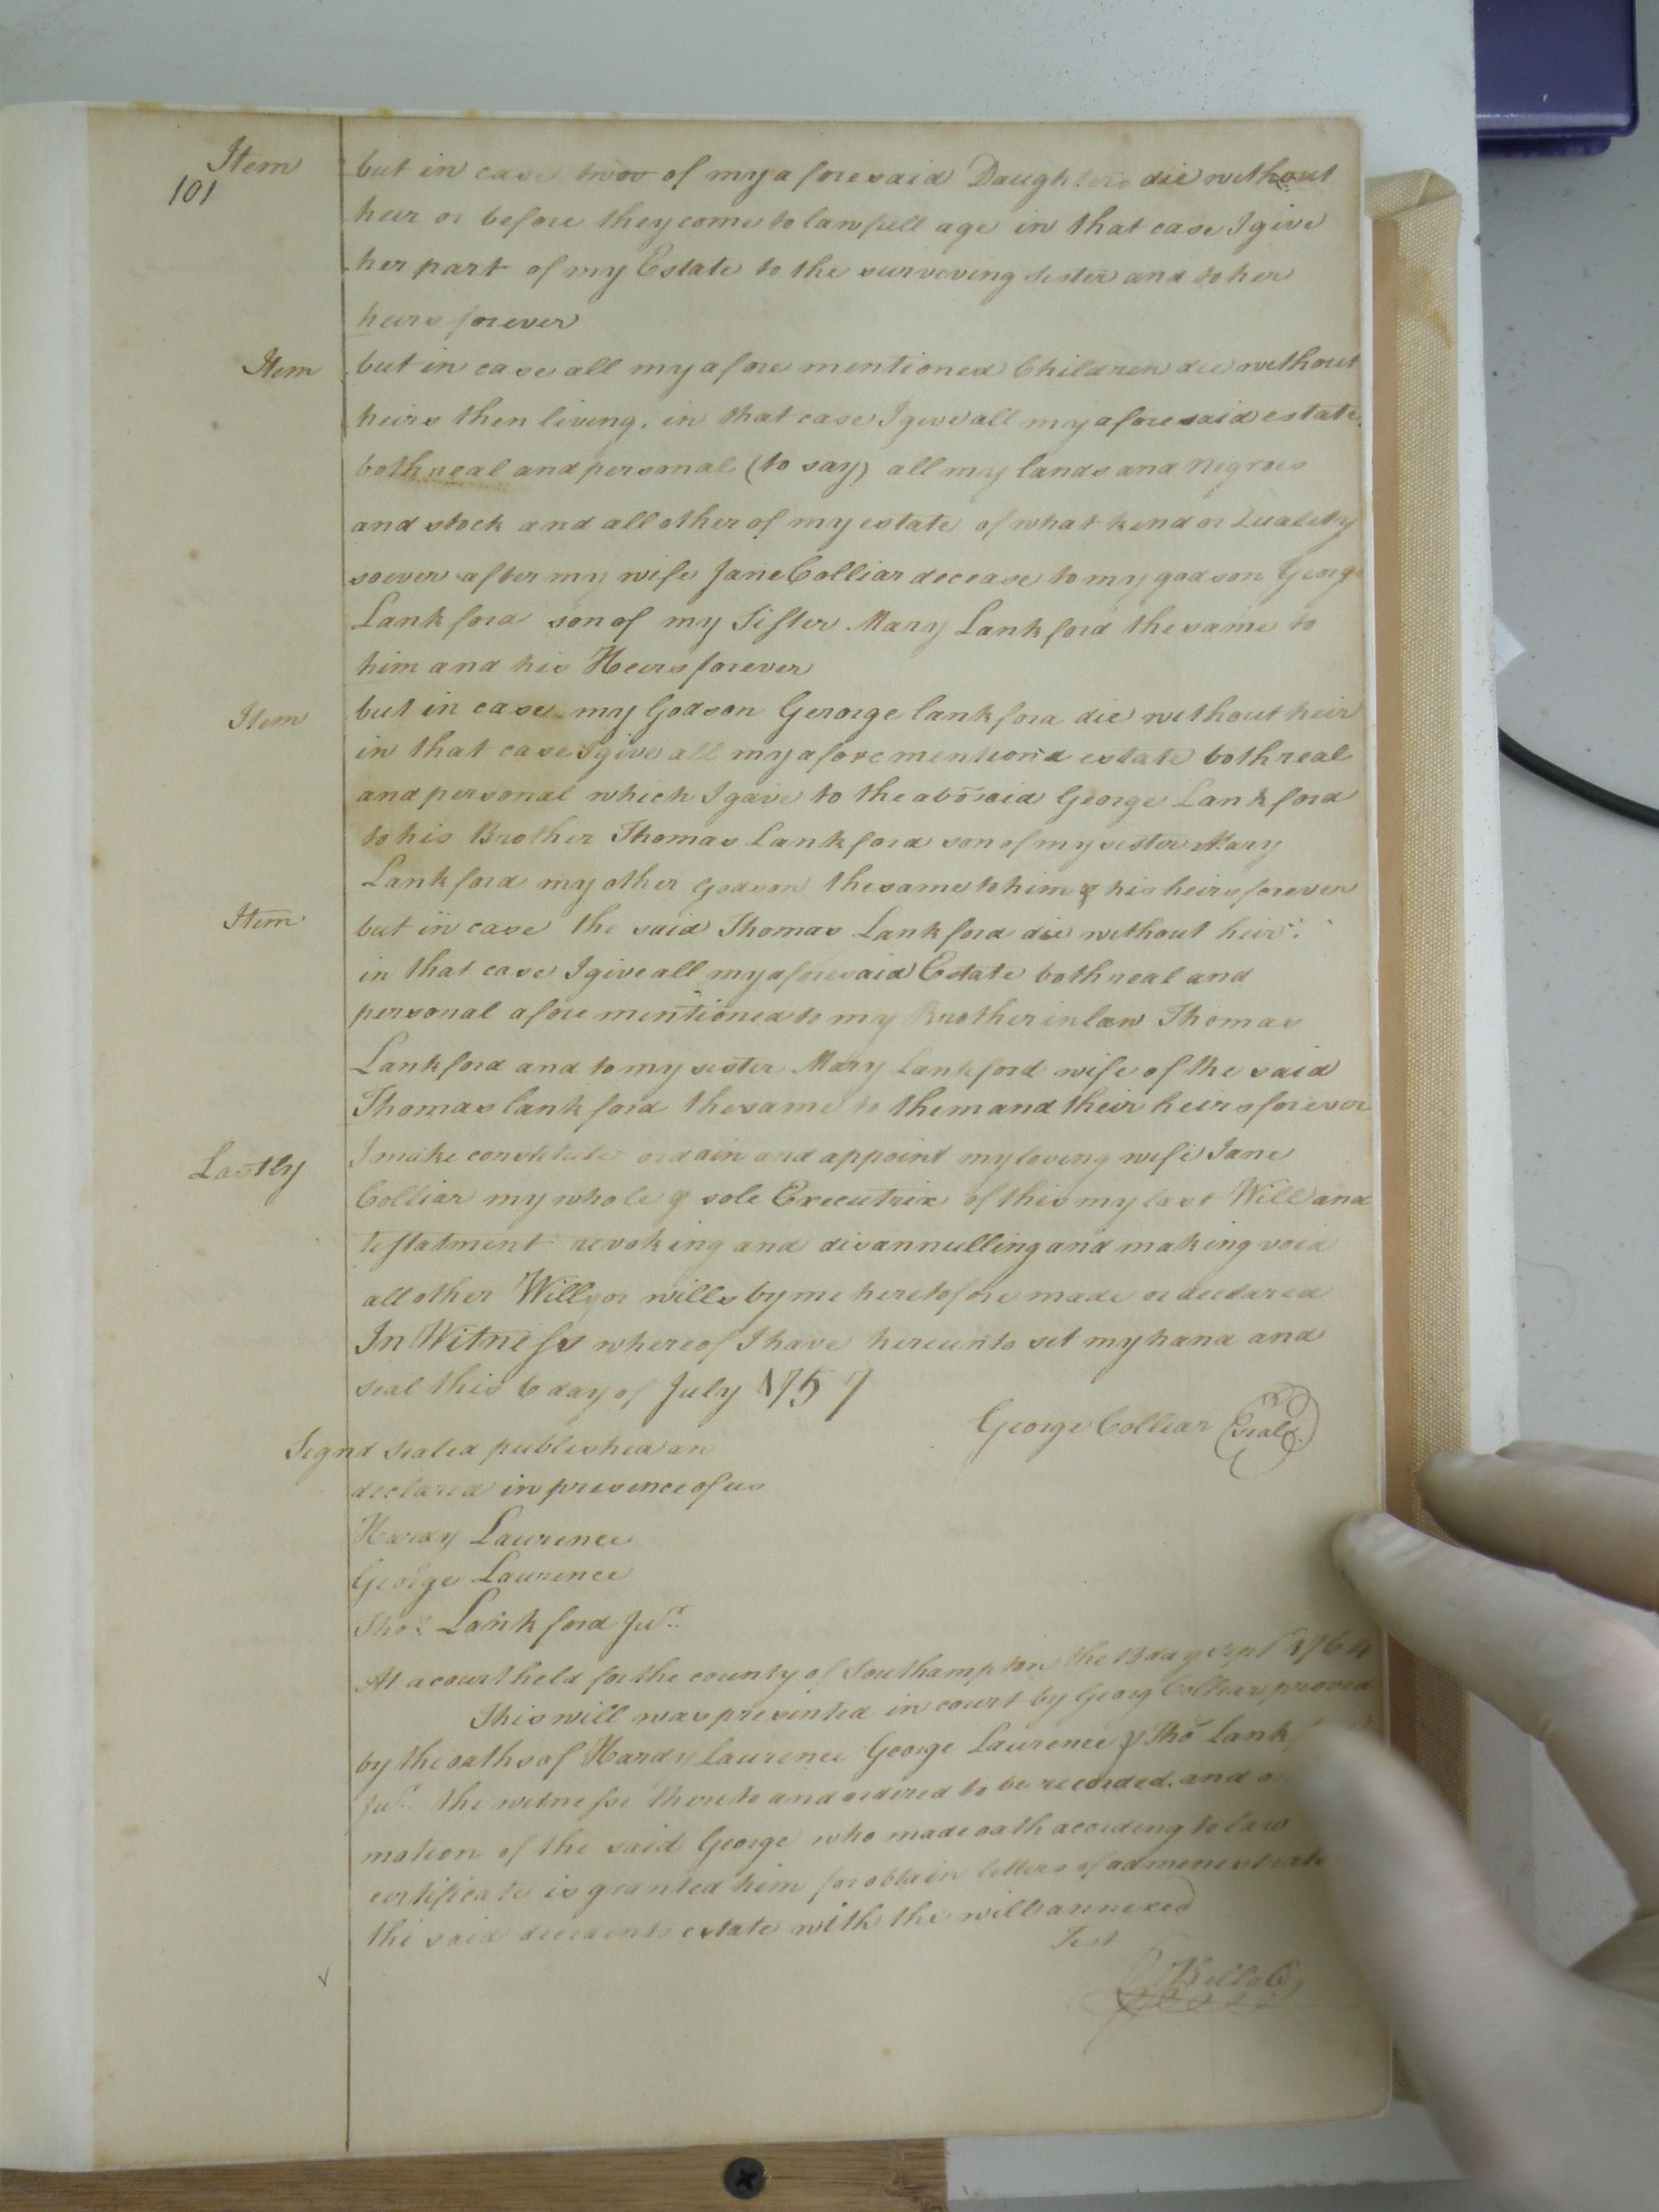 Item but in case twoo of my aforesaid Daughters die without
101
heir or before they come to lawfull age in that case I give
her part of my Estate to the surveving sister and to her
heirs forever
Item but in case all my afore mentioned Children die without
heirs then living. in that case I give all my aforesaid estate
both real and personal (to say) all my lands and negroes
and stock and all other of my estate of what kind or Quality
soever after my wife Jane Colliar decease to my godson George
Lankford son of my Sister Mary Lankford the same to
him and his Heirs forever
Item but in case my Godson Gerorge lankford die without heir
in that case I give all my aforementiond estate both real
and personal which I gave to the abosaid George Lankford
to his Brother Thomas Lankford son of my sister Mary
Lankford my other Godson the same to him & his heirs forever
Item but in case the said Thomas Lankford die without heir
in that case I give all my aforesaid Estate both real and
personal afore mentioned to my Brother in law Thomas
Lankford and to my sister Mary lankford wife of the said
Thomas lankford the same to them and their heirs forever
Lastly I make constitute ordain and appoint my loving wife Jane
Colliar my whole & sole Executrix of this my last Will and
testatment revoking and disannulling and making void
all other Will or wills by me heretofore made or declared
In Witness whereof I have hereunto set my hand and
seal this 6 day of July 1757
George Colliar (Seal)
Signd sealed published an
declared in presence of us
Hardy Laurence
George Laurence
Thos Lankford Jur.
At a court held for the county of Southampton the 13 day Sept 1764
This will was presented in court by Georg Colliar proved
by the oaths of Hardy Laurence George Laurence & Tho Lank
Jur. the witnesse thereto and ordered to be recorded. and
motion of the said George who made oath according to law
certificate is granted him for obtain letters of admenestrate
the said decedents estate with the will annexed
Test